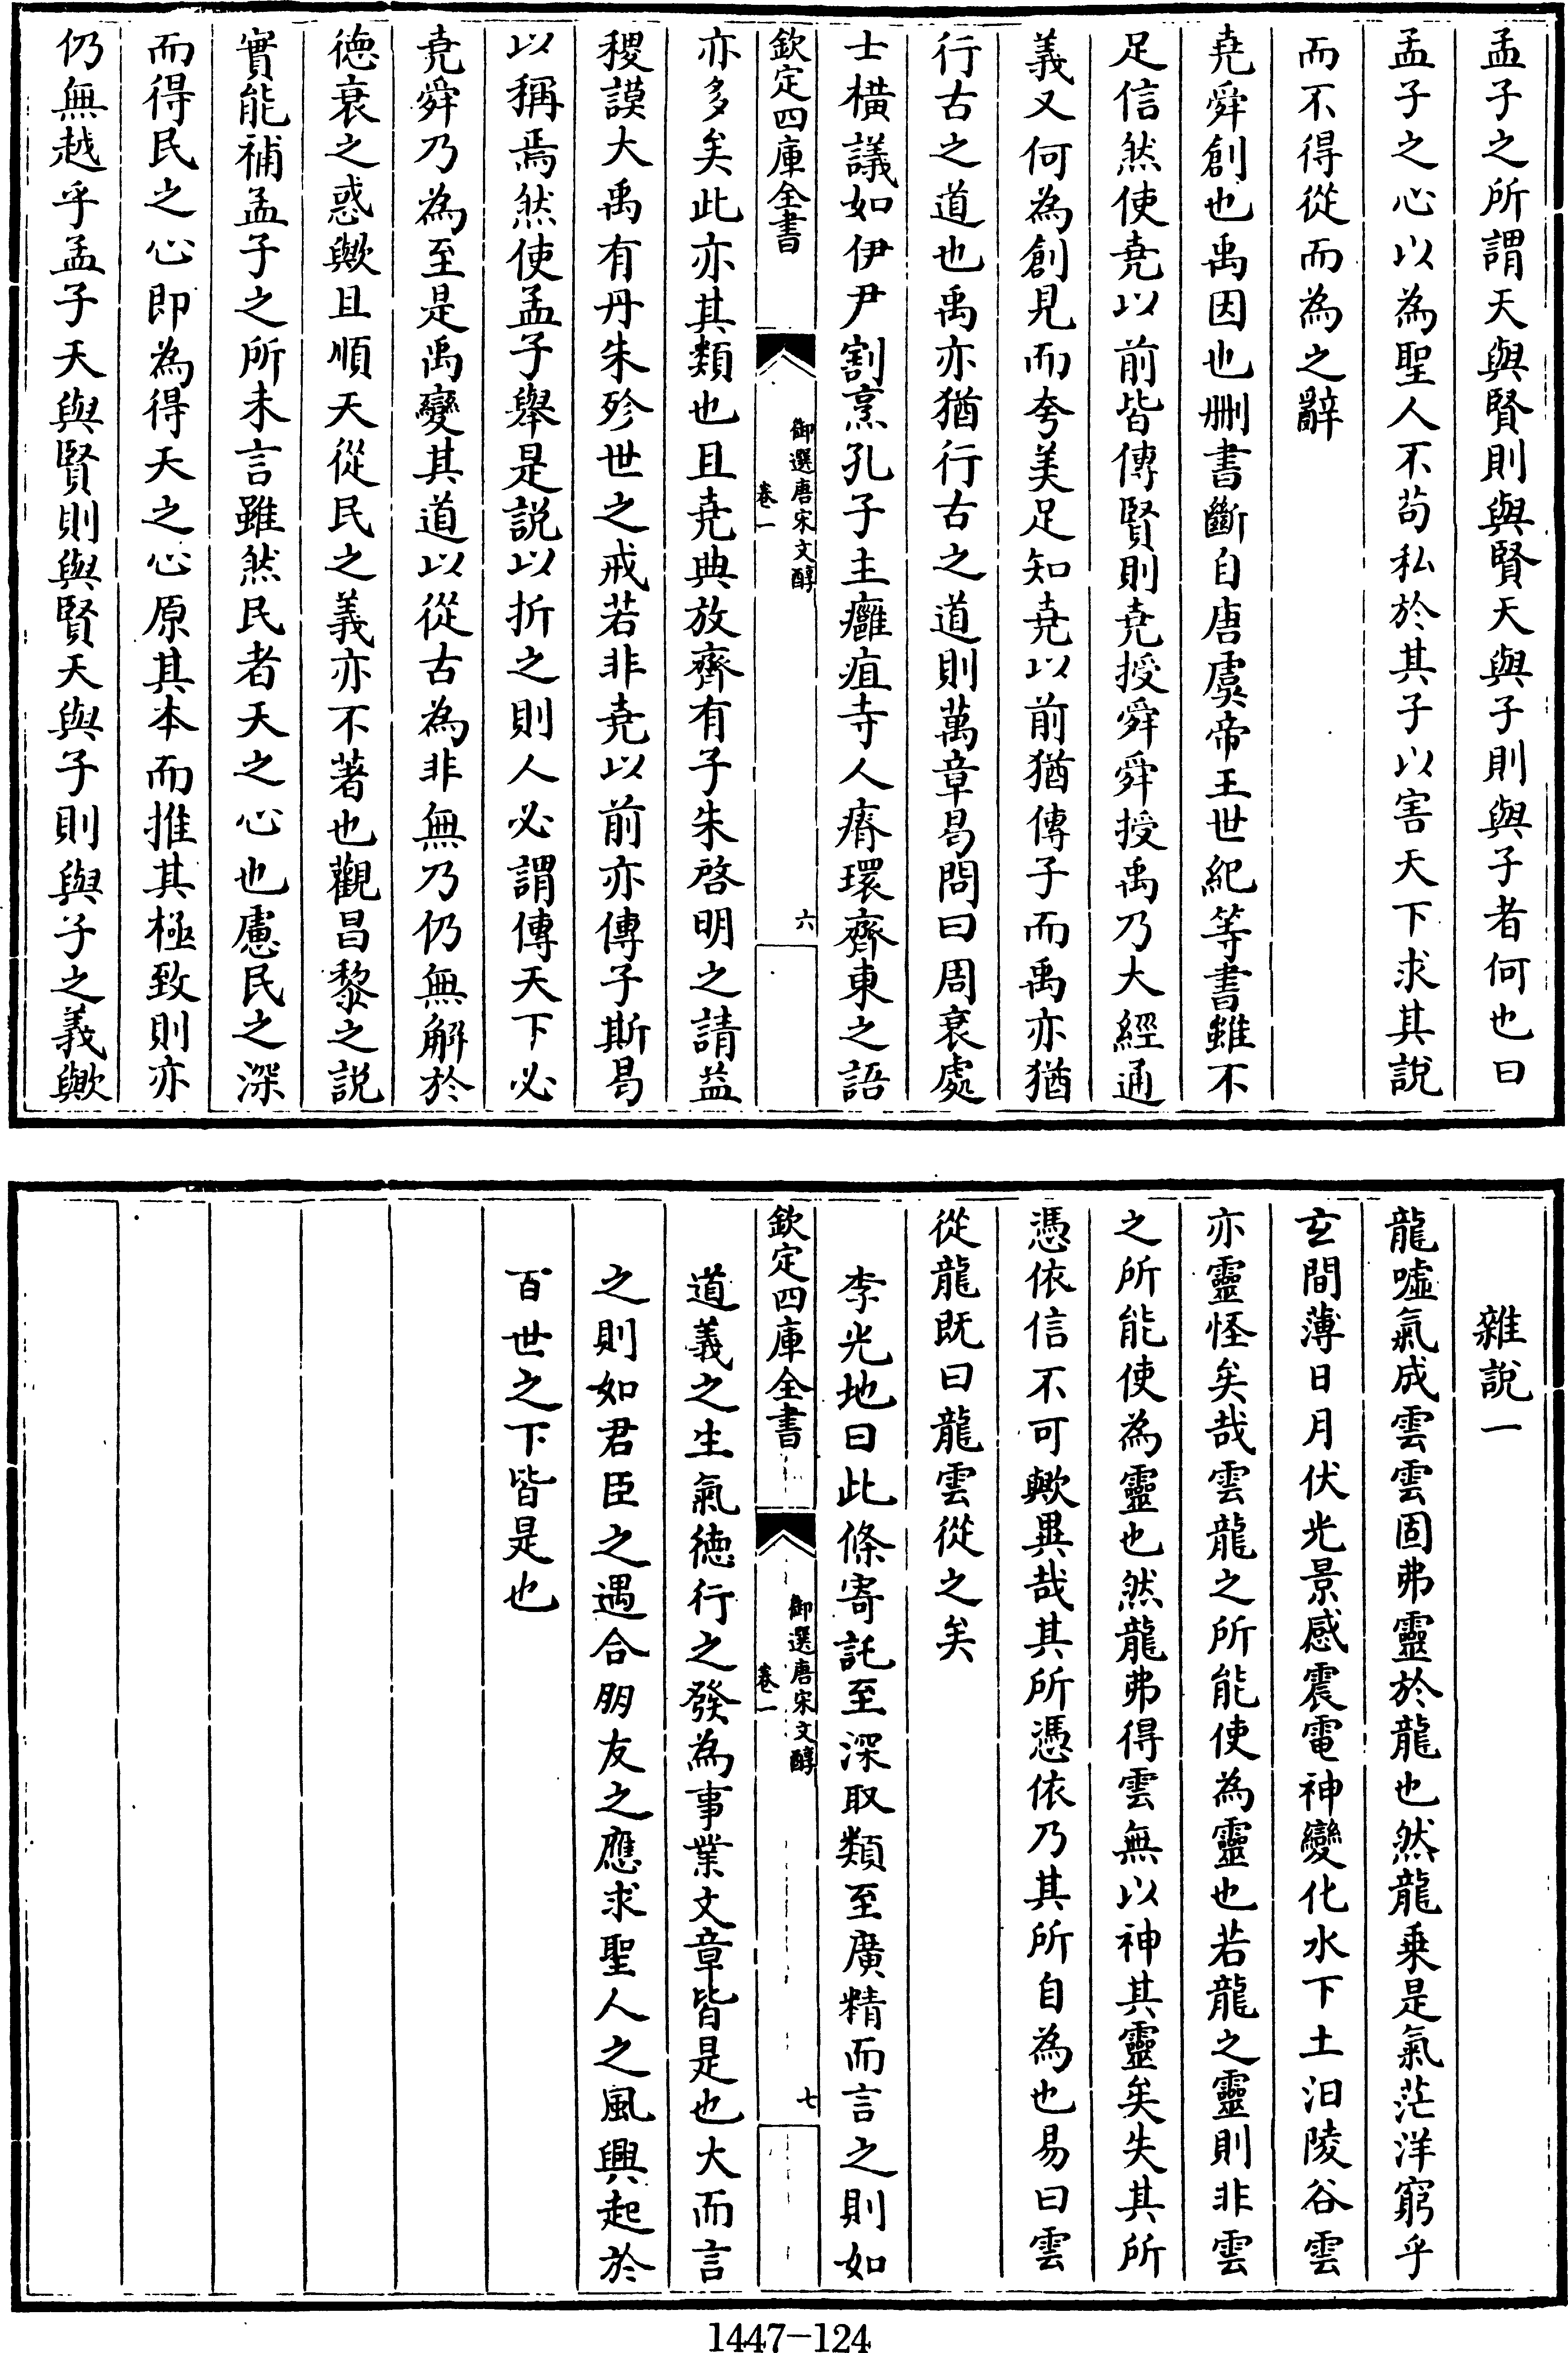 孟子之所謂天與賢則與賢天與子則與子者何也曰
孟子之心以為聖人不茍私於其子以害天下求其說
而不得從而為之辭
堯舜創也禹因也刪書斷自唐虞帝王世紀等書雖不
足信然使堯以前皆傳賢則堯授舜舜授禹乃大經通
義又何為創見而夸美足知堯以前猶傳子而禹亦猶
行古之道也禹亦猶行古之道則萬章曷問曰周衰處
士橫議如伊尹割烹孔子主癰疽寺人瘠環齊東之語
欽定四庫全書
御選唐宋文醇
卷一
六
亦多矣此亦其類也且堯典放齊有子朱啓明之請益
稷謨大禹有丹朱殄世之戒若非堯以前亦傳子斯曷
以稱焉然使孟子舉是說以折之則人必謂傳天下必
堯舜乃為至是禹變其道以從古為非無乃仍無解於
德衰之惑歟且順天從民之義亦不著也觀昌黎之說
實能補孟子之所未言雖然民者天之心也慮民之深
而得民之心即為得天之心原其本而推其極致則亦
仍無越乎孟子天與賢則與賢天與子則與子之義歟
雜說一
龍噓氣成雲雲固弗靈於龍也然龍乗是氣茫洋窮乎
玄間薄日月伏光景感震電神變化水下土汩陵谷雲
亦靈怪矣哉雲龍之所能使為靈也若龍之靈則非雲
之所能使為靈也然龍弗得雲無以神其靈矣失其所
憑依信不可歟異哉其所憑依乃其所自為也易曰雲
從龍既曰龍雲從之矣
李光地曰此條寄託至深取類至廣精而言之則如
欽定四庫全書
御選唐宋文醇
卷一
七
道義之生氣德行之發為事業文章皆是也大而言
之則如君臣之遇合朋友之應求聖人之風興起於
百世之下皆是也
1447-124